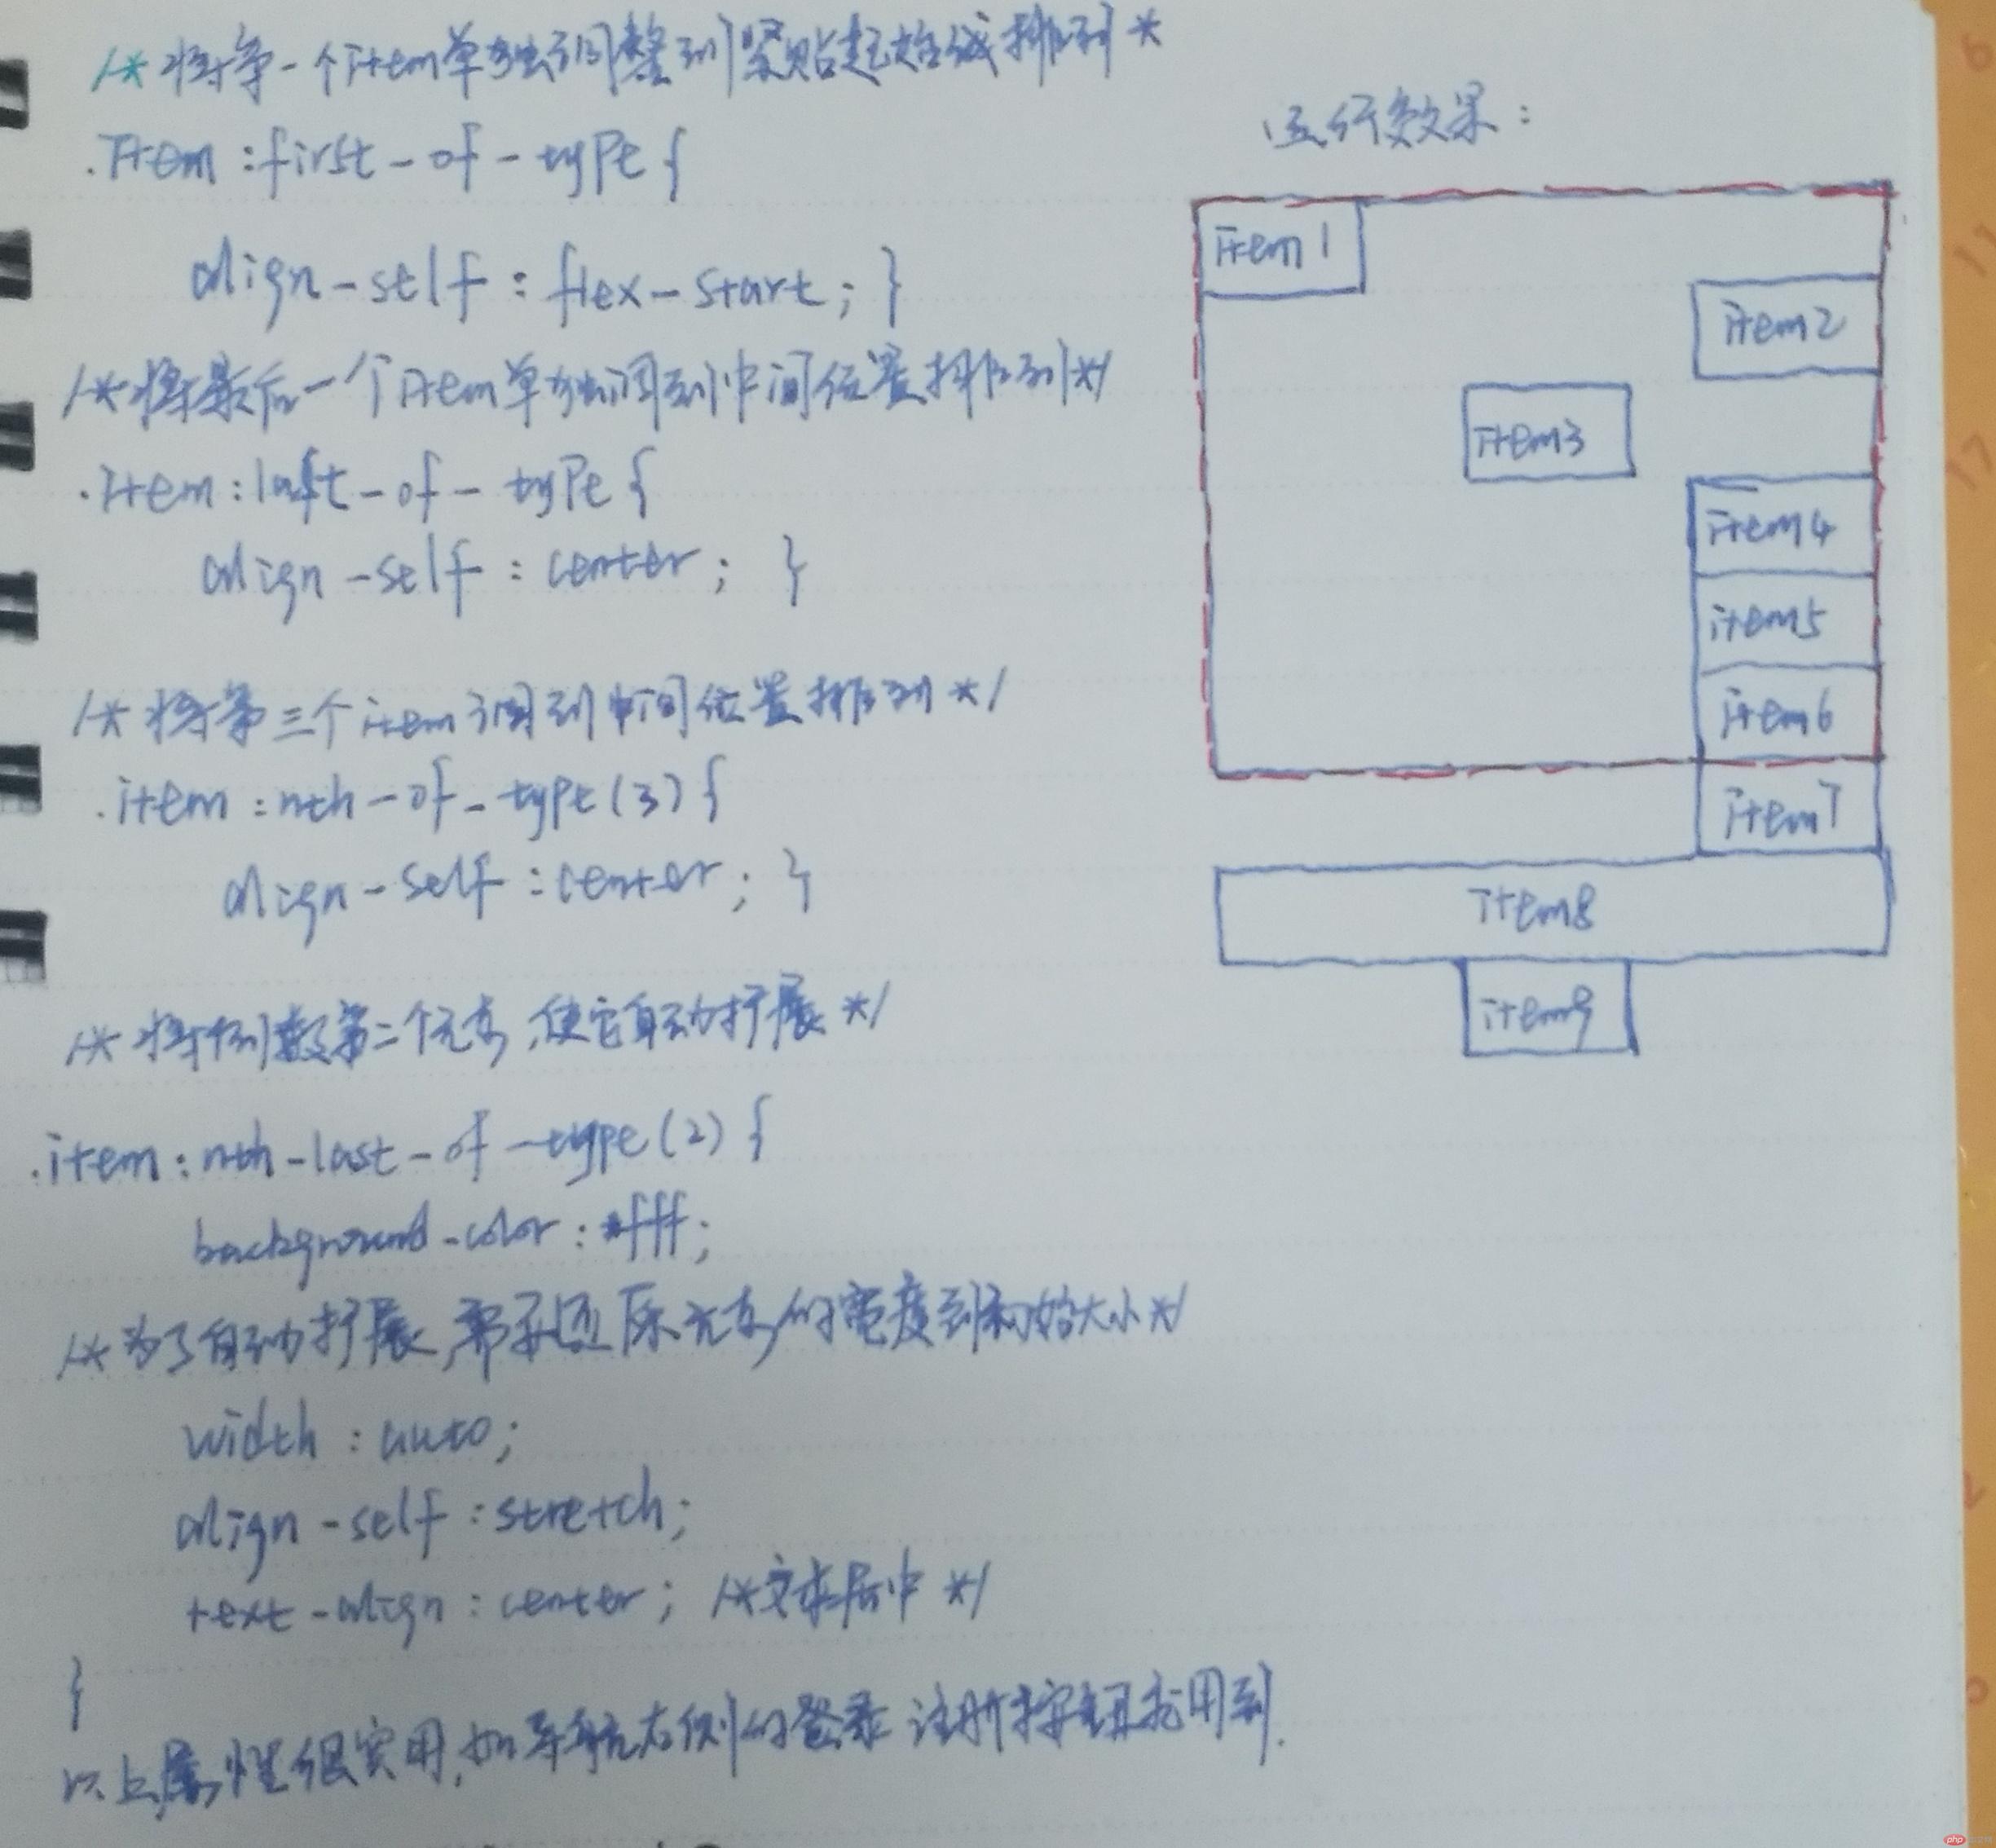 /* 将第一个item单独调整到紧贴起始线排列 *
.Item :first-of-type {
align-self : flex-start; }
/* 将最后一个item单独调到中间位置排列 */
.item : last-of-type {
align-self : center; }
/* 将第三个item调到中间位置排列 */
.item : nth-of-type (3) {
align-self : center; }
/* 将倒数第二个元素,使它自动扩展 */
.item : nth-last-of-type (2) {
background-color : #fff;
/* 为了自动扩展,需要还原元素的宽度到初始大小 */
width : auto;
align-self : stretch;
text-align : center; /*文本居中 */
}
以上属性很实用,如导航右侧的登录 注册按钮就用到.
运行效果:
item 1
item2
item3
item4
item5
item6
item7
item8
item9
6
11
17
php